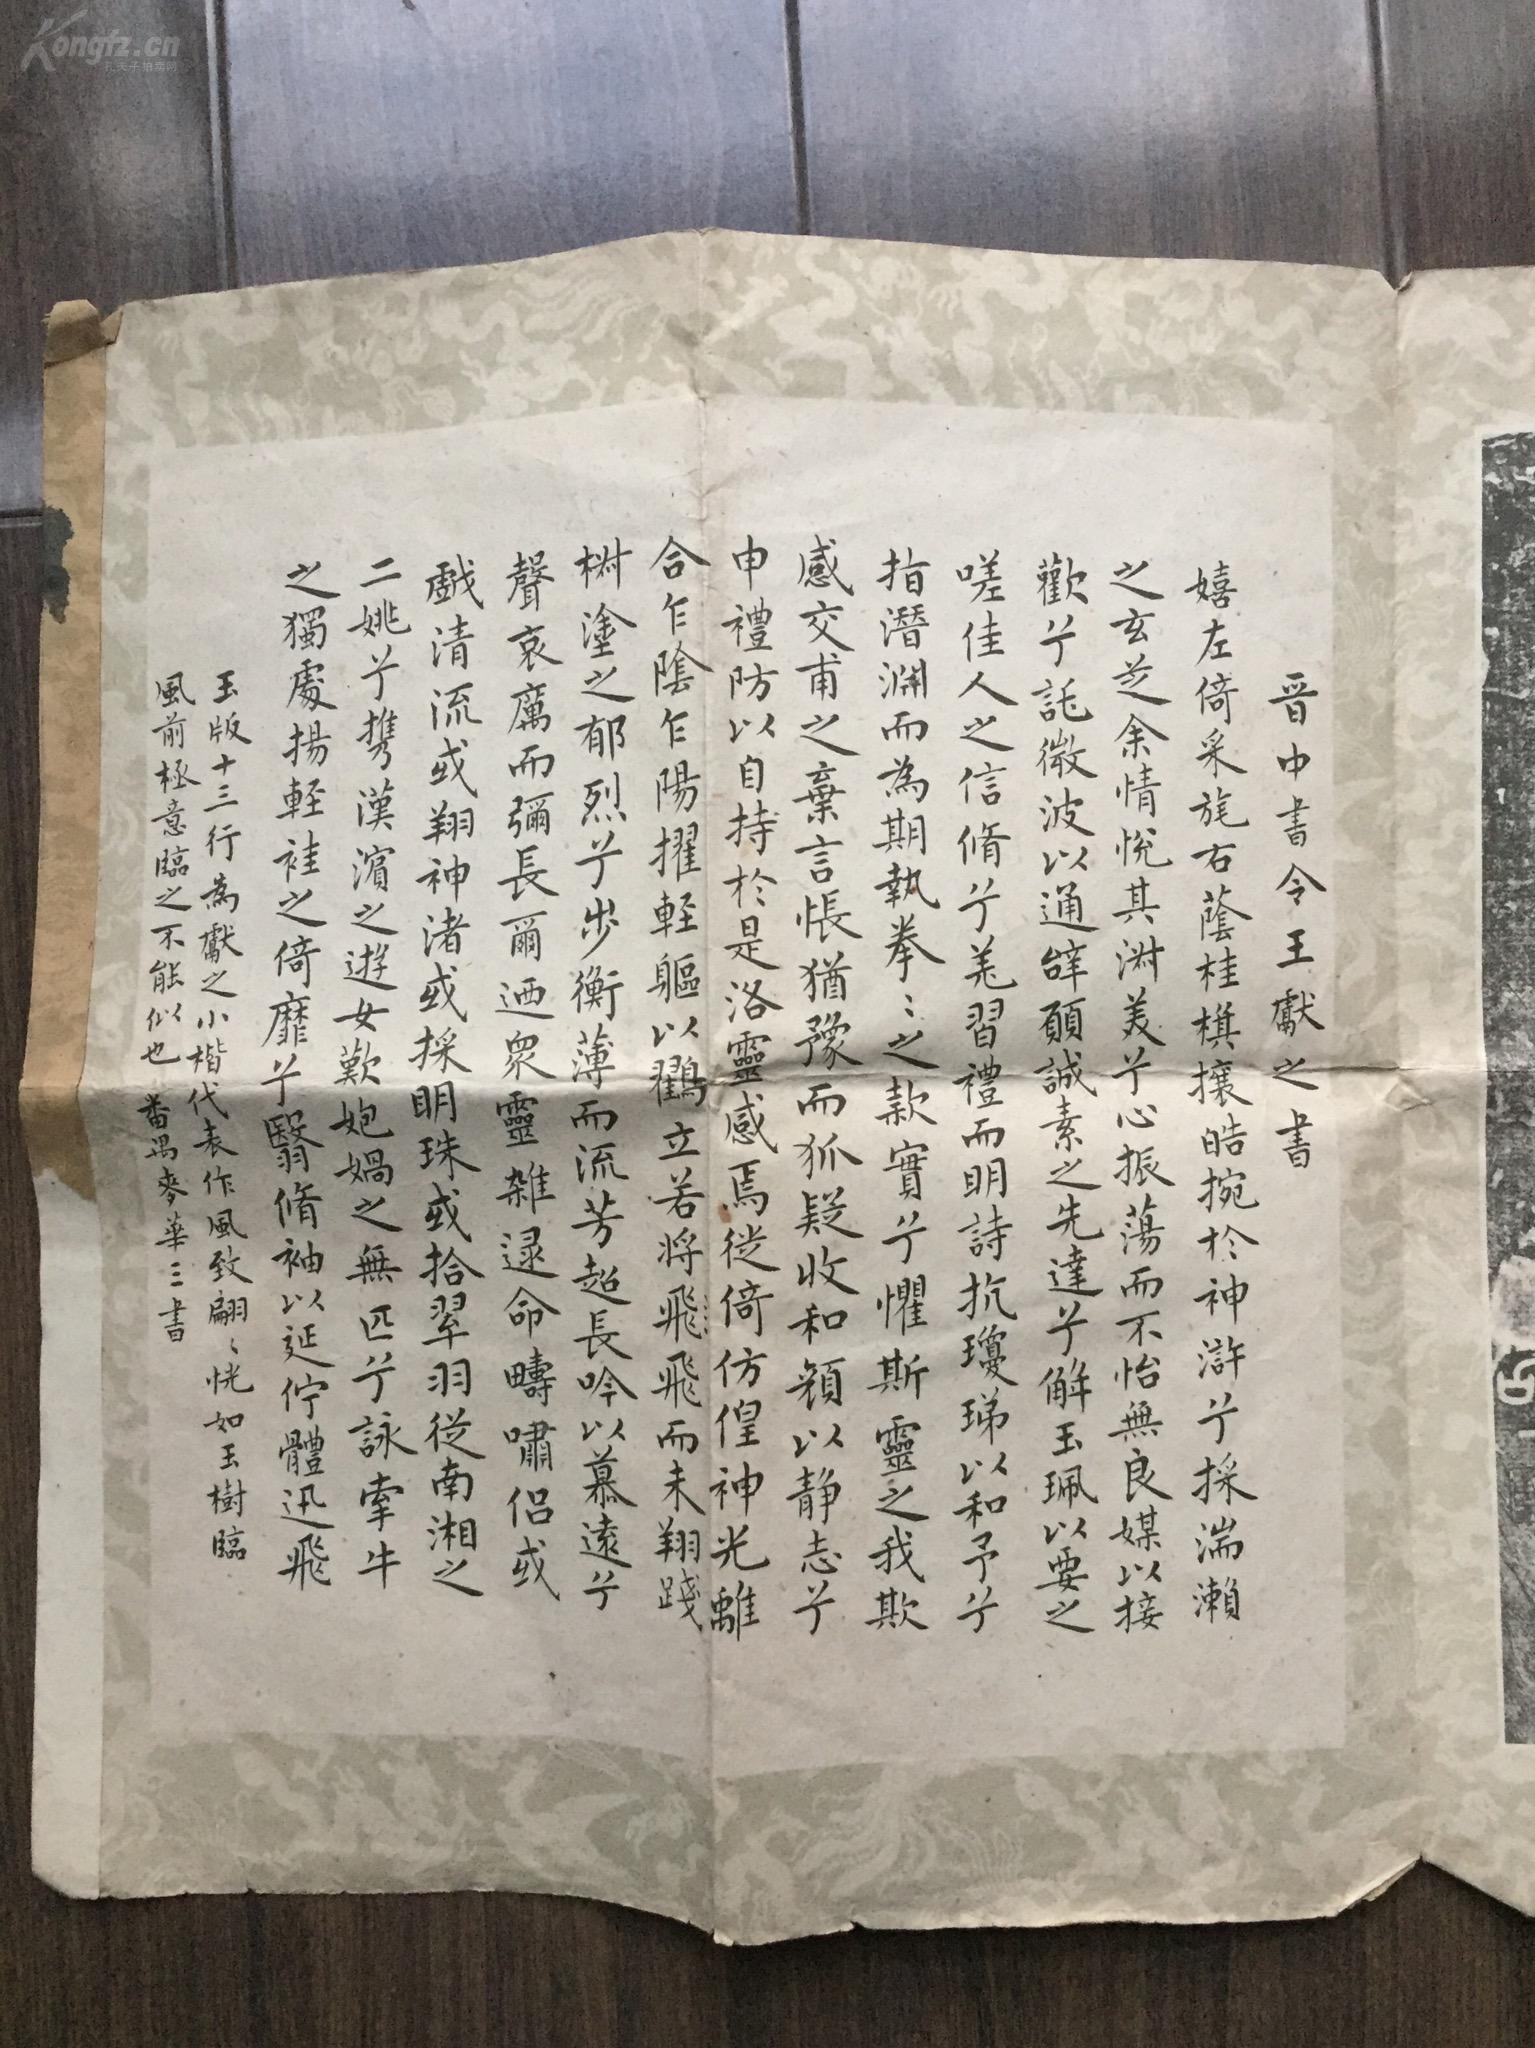 晉中書令王獻之書
嬉左倚采旄右蔭桂旗攘皓捥於神滸兮採湍瀨
之玄芝余情悅其淋美兮心振蕩而不怡無良媒以接
歡兮託微波以通辝願誠素之先達兮解玉珮以要之
嗟佳人之信脩兮羌習禮而明詩抗瓊珶以和予兮
指潛淵而為期執拳〻之款實兮懼斯靈之我欺
感交甫之棄言悵猶豫而狐疑收和顏以静志兮
申禮防以自持於是洛靈感焉徙倚仿偟神光離
合乍陰乍陽擢輕軀以鸖立若將飛飛而未翔踐
椒塗之郁烈兮步衡薄而流芳超長吟以慕遠兮
聲哀厲而彌長爾迺眾靈雜遝命疇嘯侣或
戲清流或翔神渚或採明珠或拾翠羽從南湘之
二姚兮攜漢濱之遊女歎匏媧之無匹兮詠牽牛
之獨處揚輕袿之倚靡兮翳脩袖以延佇體迅飛
玉版十三行為獻之小楷代表作風致翩〻恍如玉樹臨
風前極意臨之不能似也 番禺麥華三書
Kongfz.cn
孔夫子拍卖网